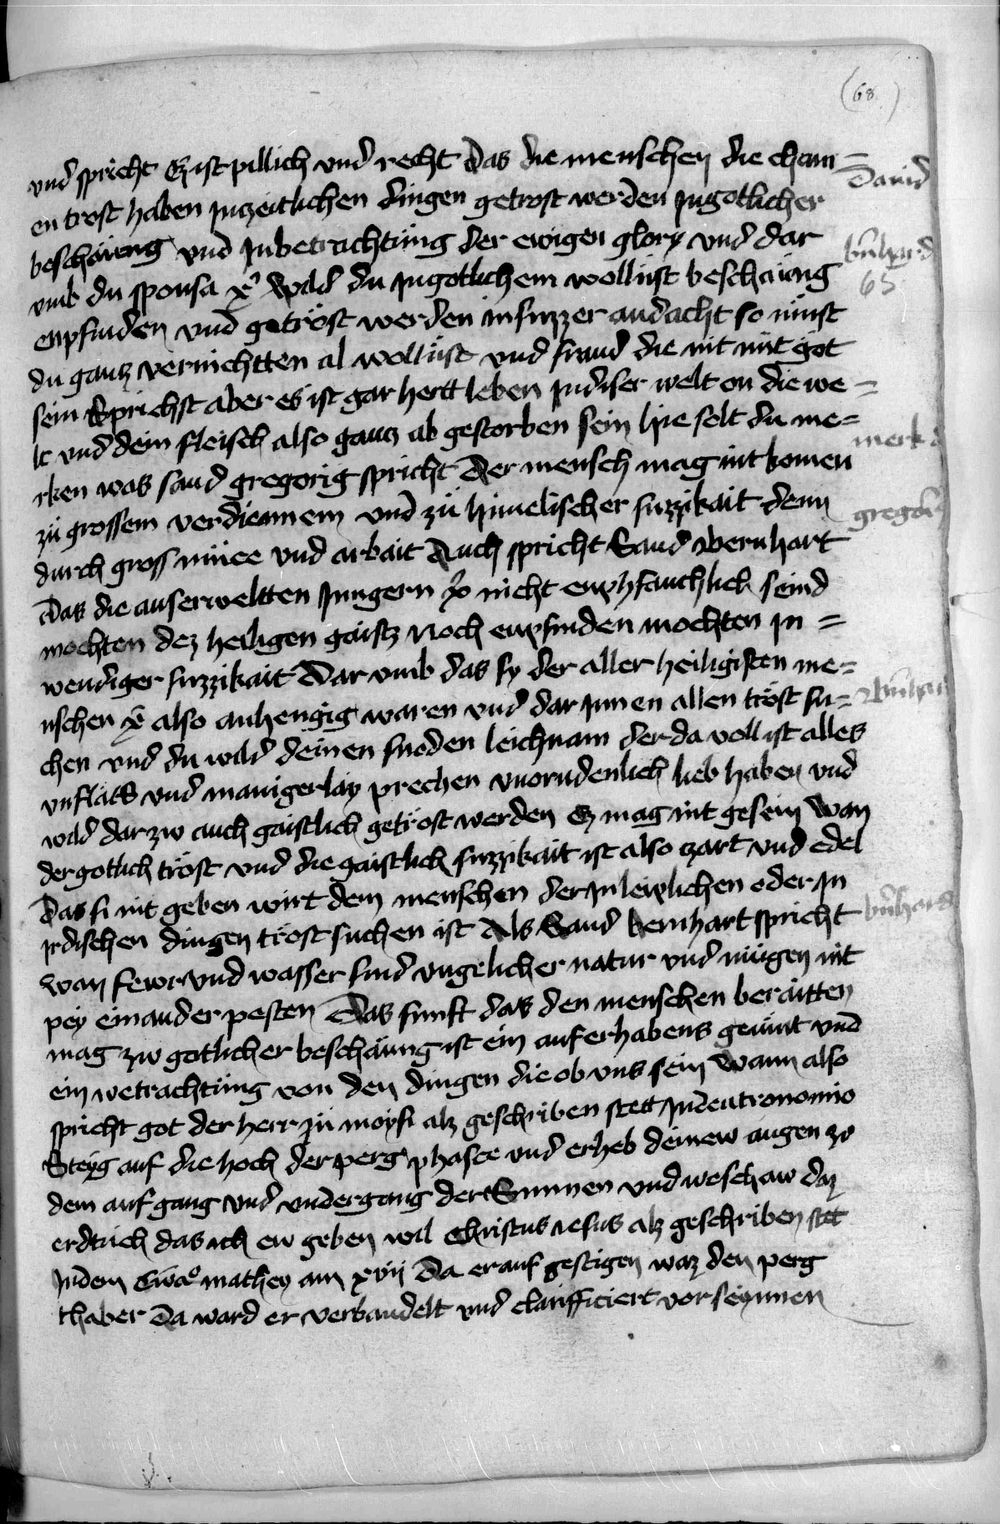 (68)
vnd spricht Ez ist pillich vnd recht Das die menschen die chain=
en trost haben Inzeitlichen dingen getrost werden Ingotlicher
beschaüng vnd Inbetrachtüng der ewigen glory vnd dar
vmb du sponsa x̄ꝰ wild du Ingotlichem wollüst beschaüng
enpfinden vnd getröst werden in süzzer andacht so müst
du gancz vernichtten al wollüst vnd fraud die nit mit got
sein Sprichst aber es ist gar hertt leben In diser welt on die we=
lt vnd dem fleisch also gancz ab gestorben sein hie solt du me=
rken was sand gregorig spricht Der mensch mag nit komen
zü grossem verdiennem vnd zü himelischer suzzikait denn
durch gross müee vnd arbait Auch spricht Sand Bernhart
Das die auserweltten Jungern x̄p̄i nicht enphfanchlich seind
mochten dez heiligen gaistz noch enpfinden mochten In=
wendiger suzzikait Dar vmb das sy der aller heiligisten me=
nschen x̄ꝰ also anhengig waren vnd dar Innen allen tröst su=
chen vnd du wild deinen snoden leichnam der da voll ist alles
vnflats vnd manigerlay prechen vnorndenlich lieb haben vnd
wild darzw auch gaistlich getröst werden Ez mag nit gesein Wan
der gotlich tröst vnd die gaistlich suzzikait ist also zart vnd edel
Das si nit geben wirt dem menschen der In leiplichen oder In
irdischen dingen tröst suchen ist Als Sand bernhart spricht
wan fewr vnd wasser sind vngelicher natur vnd mügen nit
pey einander pesten Das funft das den menschen beraitten
mag zw gotlicher beschaüng ist ein auferhabens gemüt vnd
ein wetrachtüng von den dingen die ob vns sein Wann also
spricht got der herr zü moysi alz geschriben stett Indeutronomio
Steyg auf die hoch der perg phasce vnd erheb deinew augen zo
dem aufgang vnd vndergang der Sunnen vnd weschaw daz
erdtrich das ich ew geben wil Christus iesus alz geschriben stet
Indem Ewāº mathey am xvij Da er auf gestigen waz den perg
thaber Da ward er verbandelt vnd clarifficiert vor seynnen
Dauid
bn̄hard
65
merk d
gregori
Bn̄har
bn̄hard